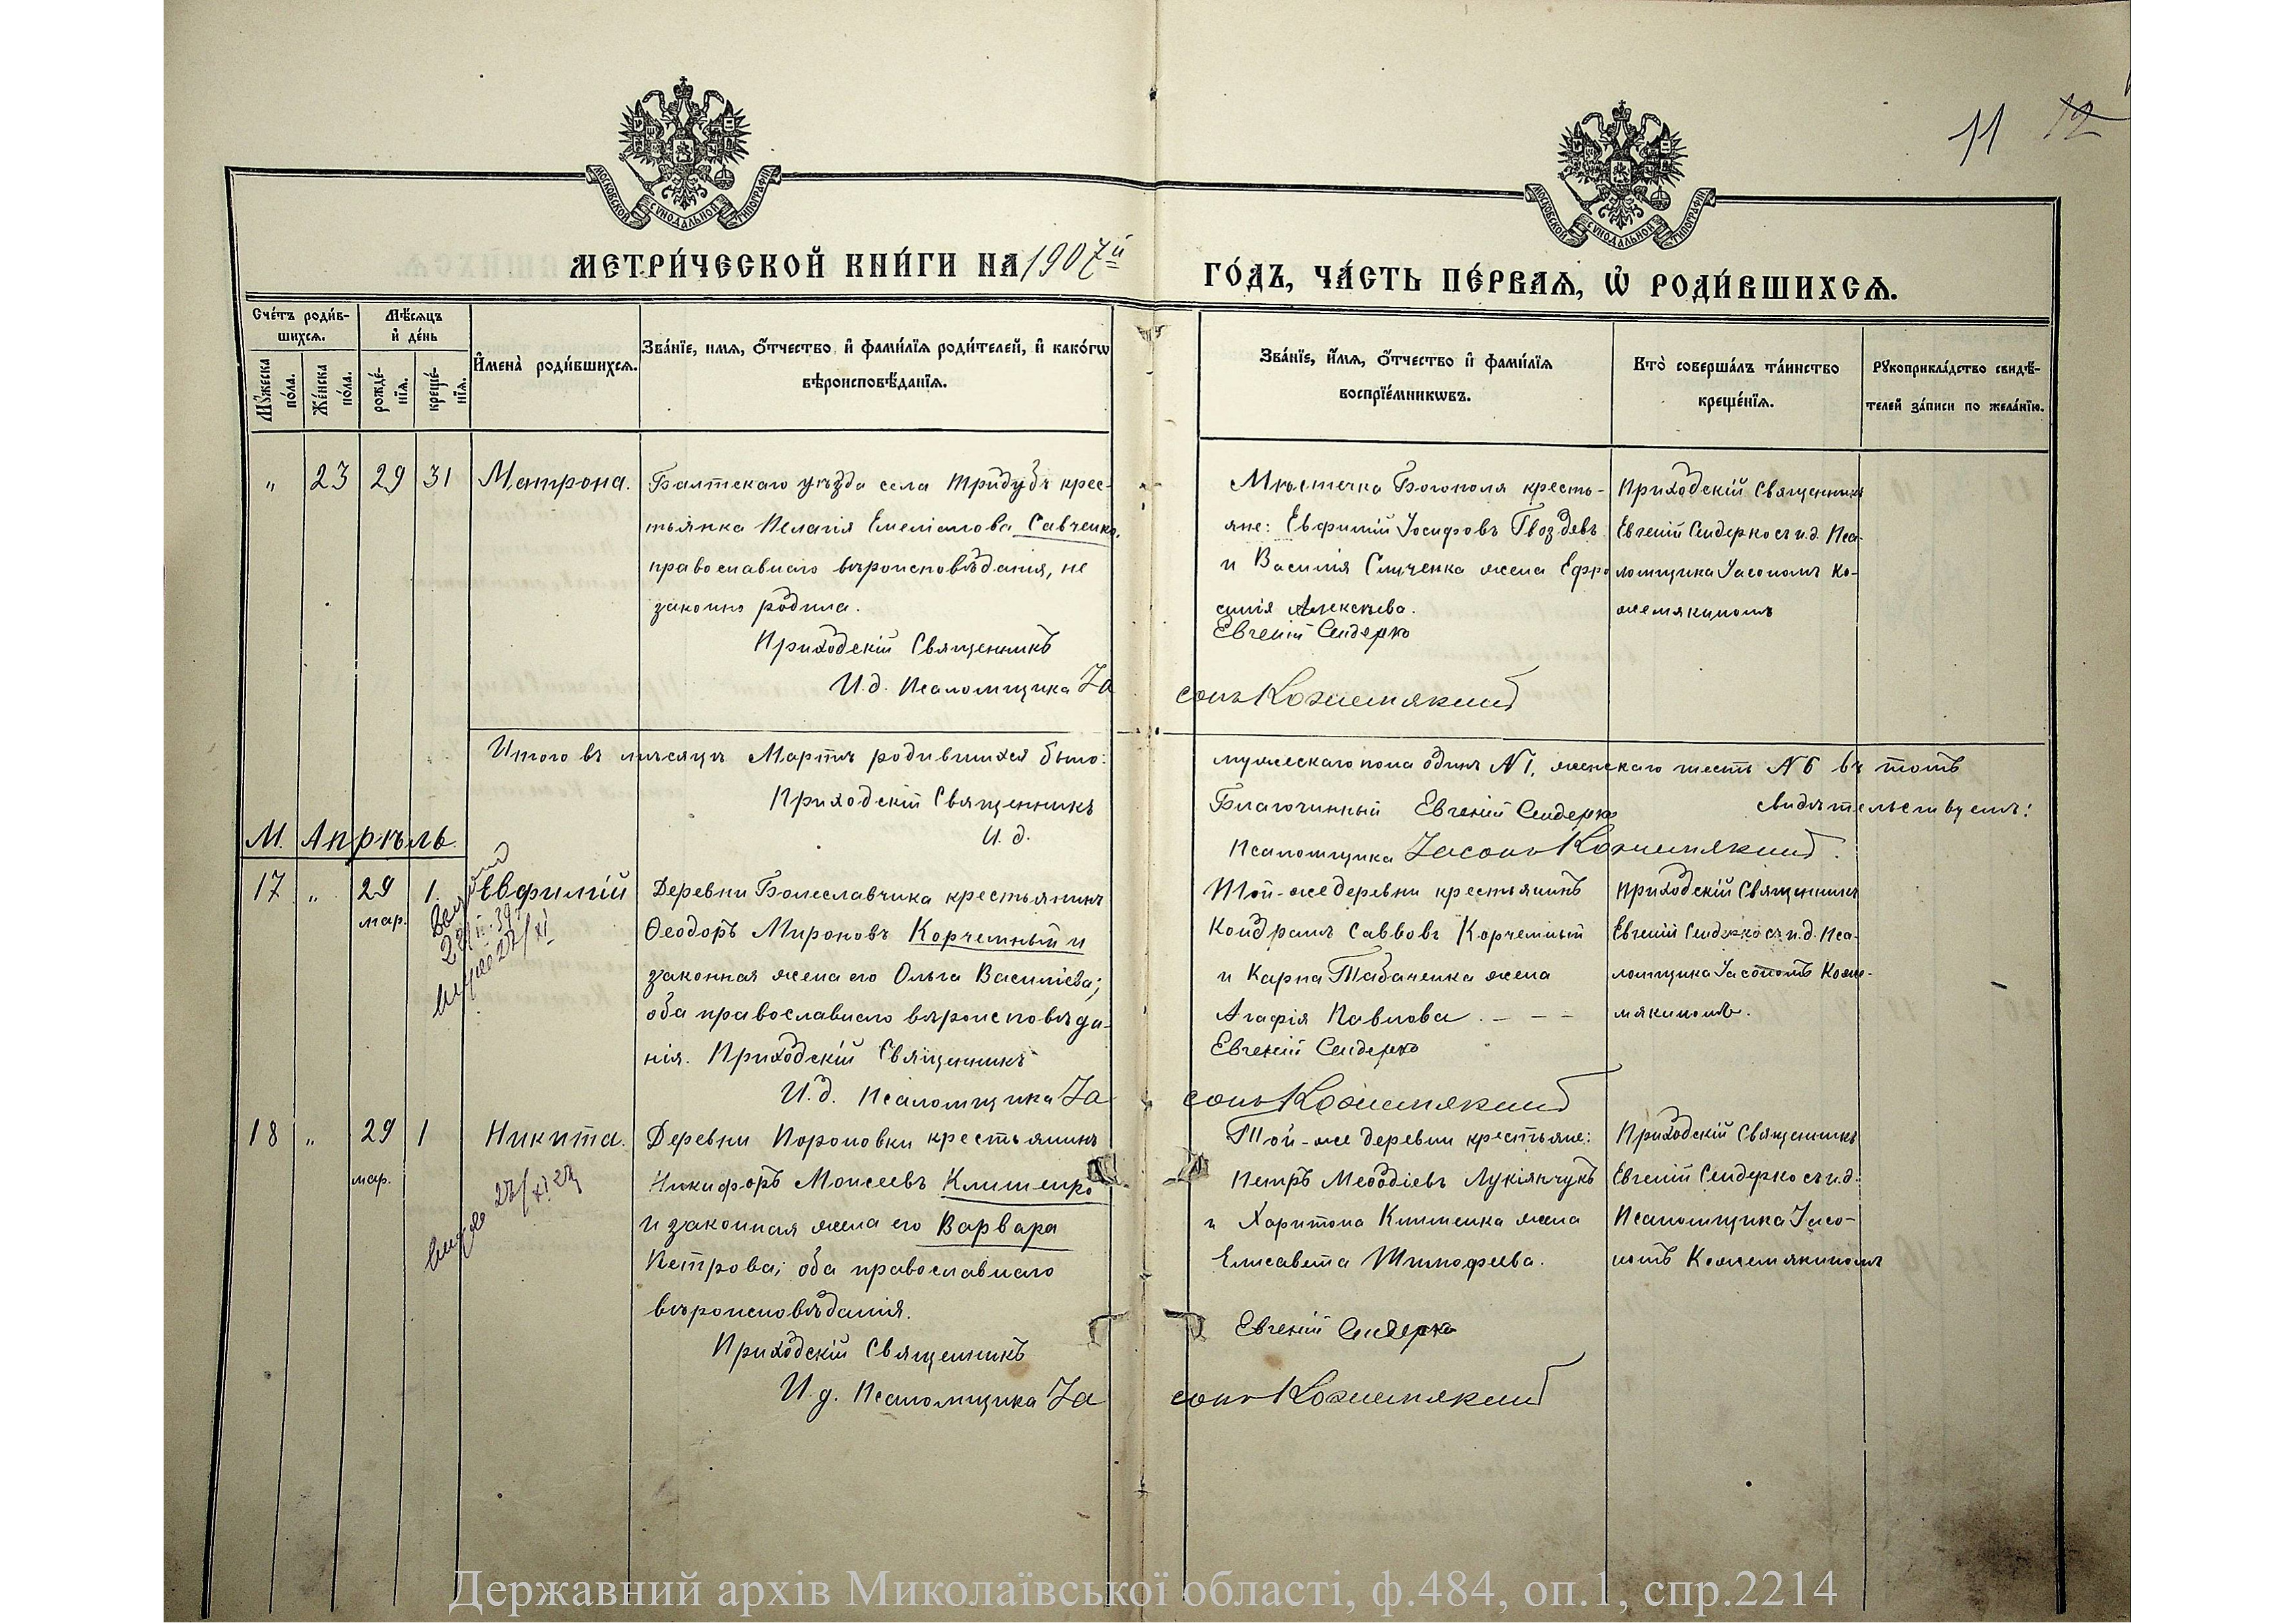 11 12
МОСКОВСКОЙ СѴНОДАЛЬНОЙ ТИПОГРАФІИ
МОСКОВСКОЙ СѴНОДАЛЬНОЙ ТИПОГРАФІИ
МЕТРИ́ЧЕСКОЙ КНИ́ГИ НА 1907й ГО́ДЪ, ЧА́СТЬ ПЕ́РВАѦ, Ѡ РОДИ́ВШИХСѦ.
Сче́тъ роди́в-
шихсѧ.
Мѣ́сѧцъ
и҆ де́нь
Мꙋ́жеска по́ла.
Же́нска по́ла.
рожде́-нїѧ.
креще́-нїѧ.
И҆мена̀ роди́вшихсѧ.
Зва́нїе, имѧ, ѻ҆́тчество и҆ фами́лїѧ роди́телей, и҆ како́гѡ
вѣроисповѣ́данїѧ.
Зва́нїе, и҆́мѧ, ѻ҆́тчество и҆ фами́лїѧ
воспрїе́мникѡвъ.
Кто̀ соверша́лъ та́инство
креще́нїѧ.
Рꙋкоприкла́дство свидѣ́-
телей за́писи по жела́нїю.
" 23 29 31 Матрона.
Балтскаго уѣзда села Тридубъ крес-
тьянка Пелагія Емеліанова Савченко,
православнаго вѣроисповѣданія, не
законно родила.
Приходскій Священникъ
И.д. Псаломщика Іа
Мѣстечка Богополя кресть-
яне: Евфимій Іосифовъ Гвоздевъ
и Василія Слученка жена Ефро
синія Алексѣева.
Евгеній Сендерко
сонъ Кожемякинъ
Приходскій Священникъ
Евгеній Сендерко съ и.д. Пса-
ломщика Іасономъ Ко-
жемякиномъ
Итого въ мѣсяцѣ Мартѣ родившихся было: мужескаго пола одинъ N1, женскаго шесть N6 въ томъ
свидѣтельствуемъ:
Приходскій Священникъ Благочинный Евгеній Сендерко
И.д. Псаломщика Іасонъ Кожемякинъ.
М. Апрѣль.
17 " 29 1. Евфимій
мар.
Деревни Болеславчика крестьянинъ
Ѳеодоръ Мироновъ Корчемный и
законная жена его Ольга Василіева;
оба православнаго вѣроисповѣда-
нія. Приходскій Священникъ
И.д. Псаломщика Іа
Той-же деревни крестьянинъ
Кондратъ Саввовъ Корчемный
и Карпа Табаченка жена
Агафія Павлова. - - -
Евгеній Сендерко
сонъ Кожемякинъ
Приходскій Священникъ
Евгеній Сендерко съ и.д. Пса-
ломщика Іасономъ Коже-
мякиномъ.
18 " 29 1 Никита.
мар.
27/XI 23
Деревни Пороповки крестьянинъ
Никифоръ Моисеевъ Клименко
и законная жена его Варвара
Петрова; оба православнаго
вѣроисповѣданія.
Приходскій Священникъ
И.д. Псаломщика Іа
Той-же деревни крестьяне:
Петръ Меѳодіевъ Лукіянчукъ
и Харитона Клименка жена
Елисавета Тимофеева.
Евгеній Сендерко
сонъ Кожемякинъ
Приходскій Священникъ
Евгеній Сендерко съ и.д.
Псаломщика Іасо-
номъ Кожемякиномъ
Державний архів Миколаївської області, ф.484, оп.1, спр.2214